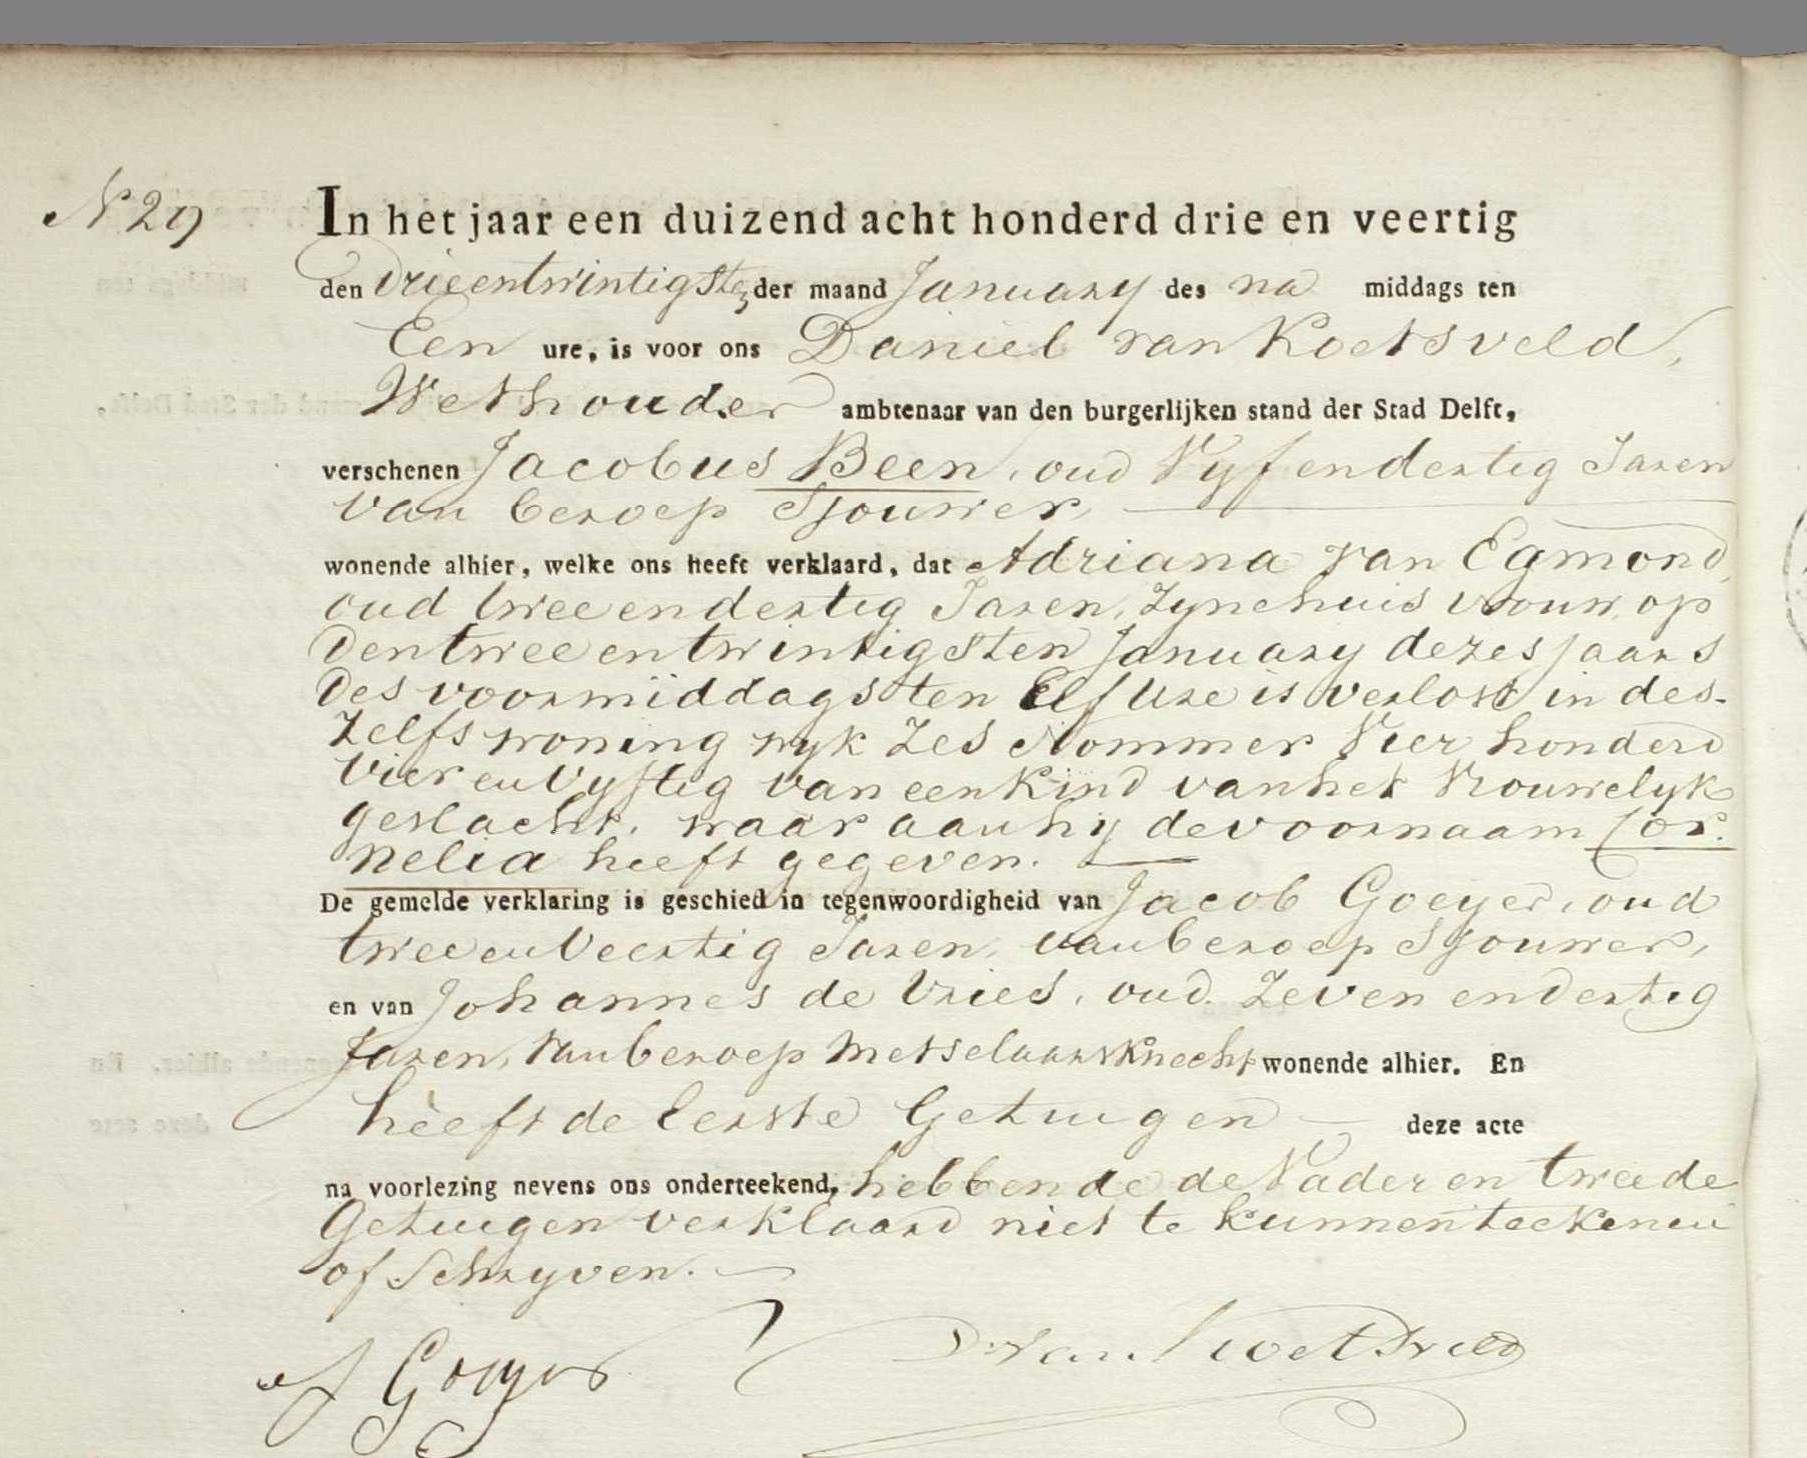 N 29
In het jaar een duizend acht honderd drie en veertig
den Drieentwintigsten der maand January des na middags ten
Een ure, is voor ons Daniel van Koetsveld,
Wethouder ambtenaar van den burgerlijken stand der Stad Delft,
verschenen Jacobus Been, oud Vyfendertig Jaren
van beroep Sjouwer,
wonende alhier, welke ons heeft verklaard, dat Adriana van Egmond,
oud tweeendertig Jaren, Zynehuisvrouw, op
Dentweeentwintigsten January dezesjaars
Des voormiddags ten Elf Ure is verlost in des-
Zelfs woning wyk Zes Nommer Vier honderd
VierenVyftig van een Kind van het Vrouwelyk
geslacht, waar aan hy de voornaam Cor-
nelia heeft gegeven.
De gemelde verklaring is geschied in tegenwoordigheid van Jacob Goeyer, oud
tweeenveertig Jaren, van beroep Sjouwer,
en van Johannes de Vries, oud Zeven endertig
Jaren, van beroep Metselaarsknecht wonende alhier. En
heeft de Eerste Getuigen deze acte
na voorlezing nevens ons onderteekend, hebbende de Vader en tweede
Getuigen verklaard niet te kunnen teekenen
of Schryven.
J Goeyer D. van Koetsveld